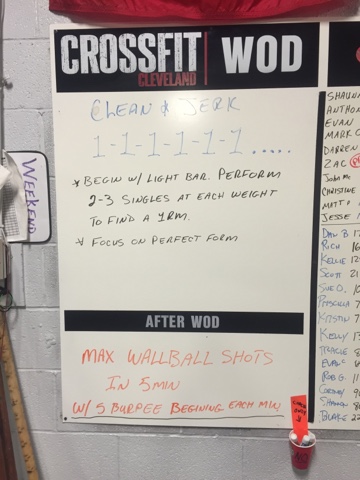 CROSSFIT
CLEVELAND
WOD
CLEAN & JERK
1-1-1-1-1-1.....
* BEGIN W/ LIGHT BAR. PERFORM
2-3 SINGLES AT EACH WEIGHT
TO FIND A 1RM.
* FOCUS ON PERFECT FORM
AFTER WOD
MAX WALLBALL SHOTS
IN 5 MIN
W/ 5 BURPEE BEGINING EACH MIN
WEEKEND
SHAUN
ANTHON
EVAN
MARK C
DARREN
ZAC
JOHN MC
CHRISTINE
MATT
JESSE
DAN B 17
RICH 16
KELLIE 12
SCOTT 21
SUE D. 10
PRISCILLA
KRISTIN 7
KELLY 13
ROB G. 11
COREY 9
SHANNON 8
BLAKE 22